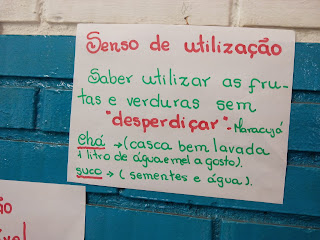 Senso de utilização
Saber utilizar as fru-
tas e verduras sem
"desperdiçar". Maracujá
chá → (casca bem lavada
1 litro de água e mel a gosto).
suco → (sementes e água).
ão
ível